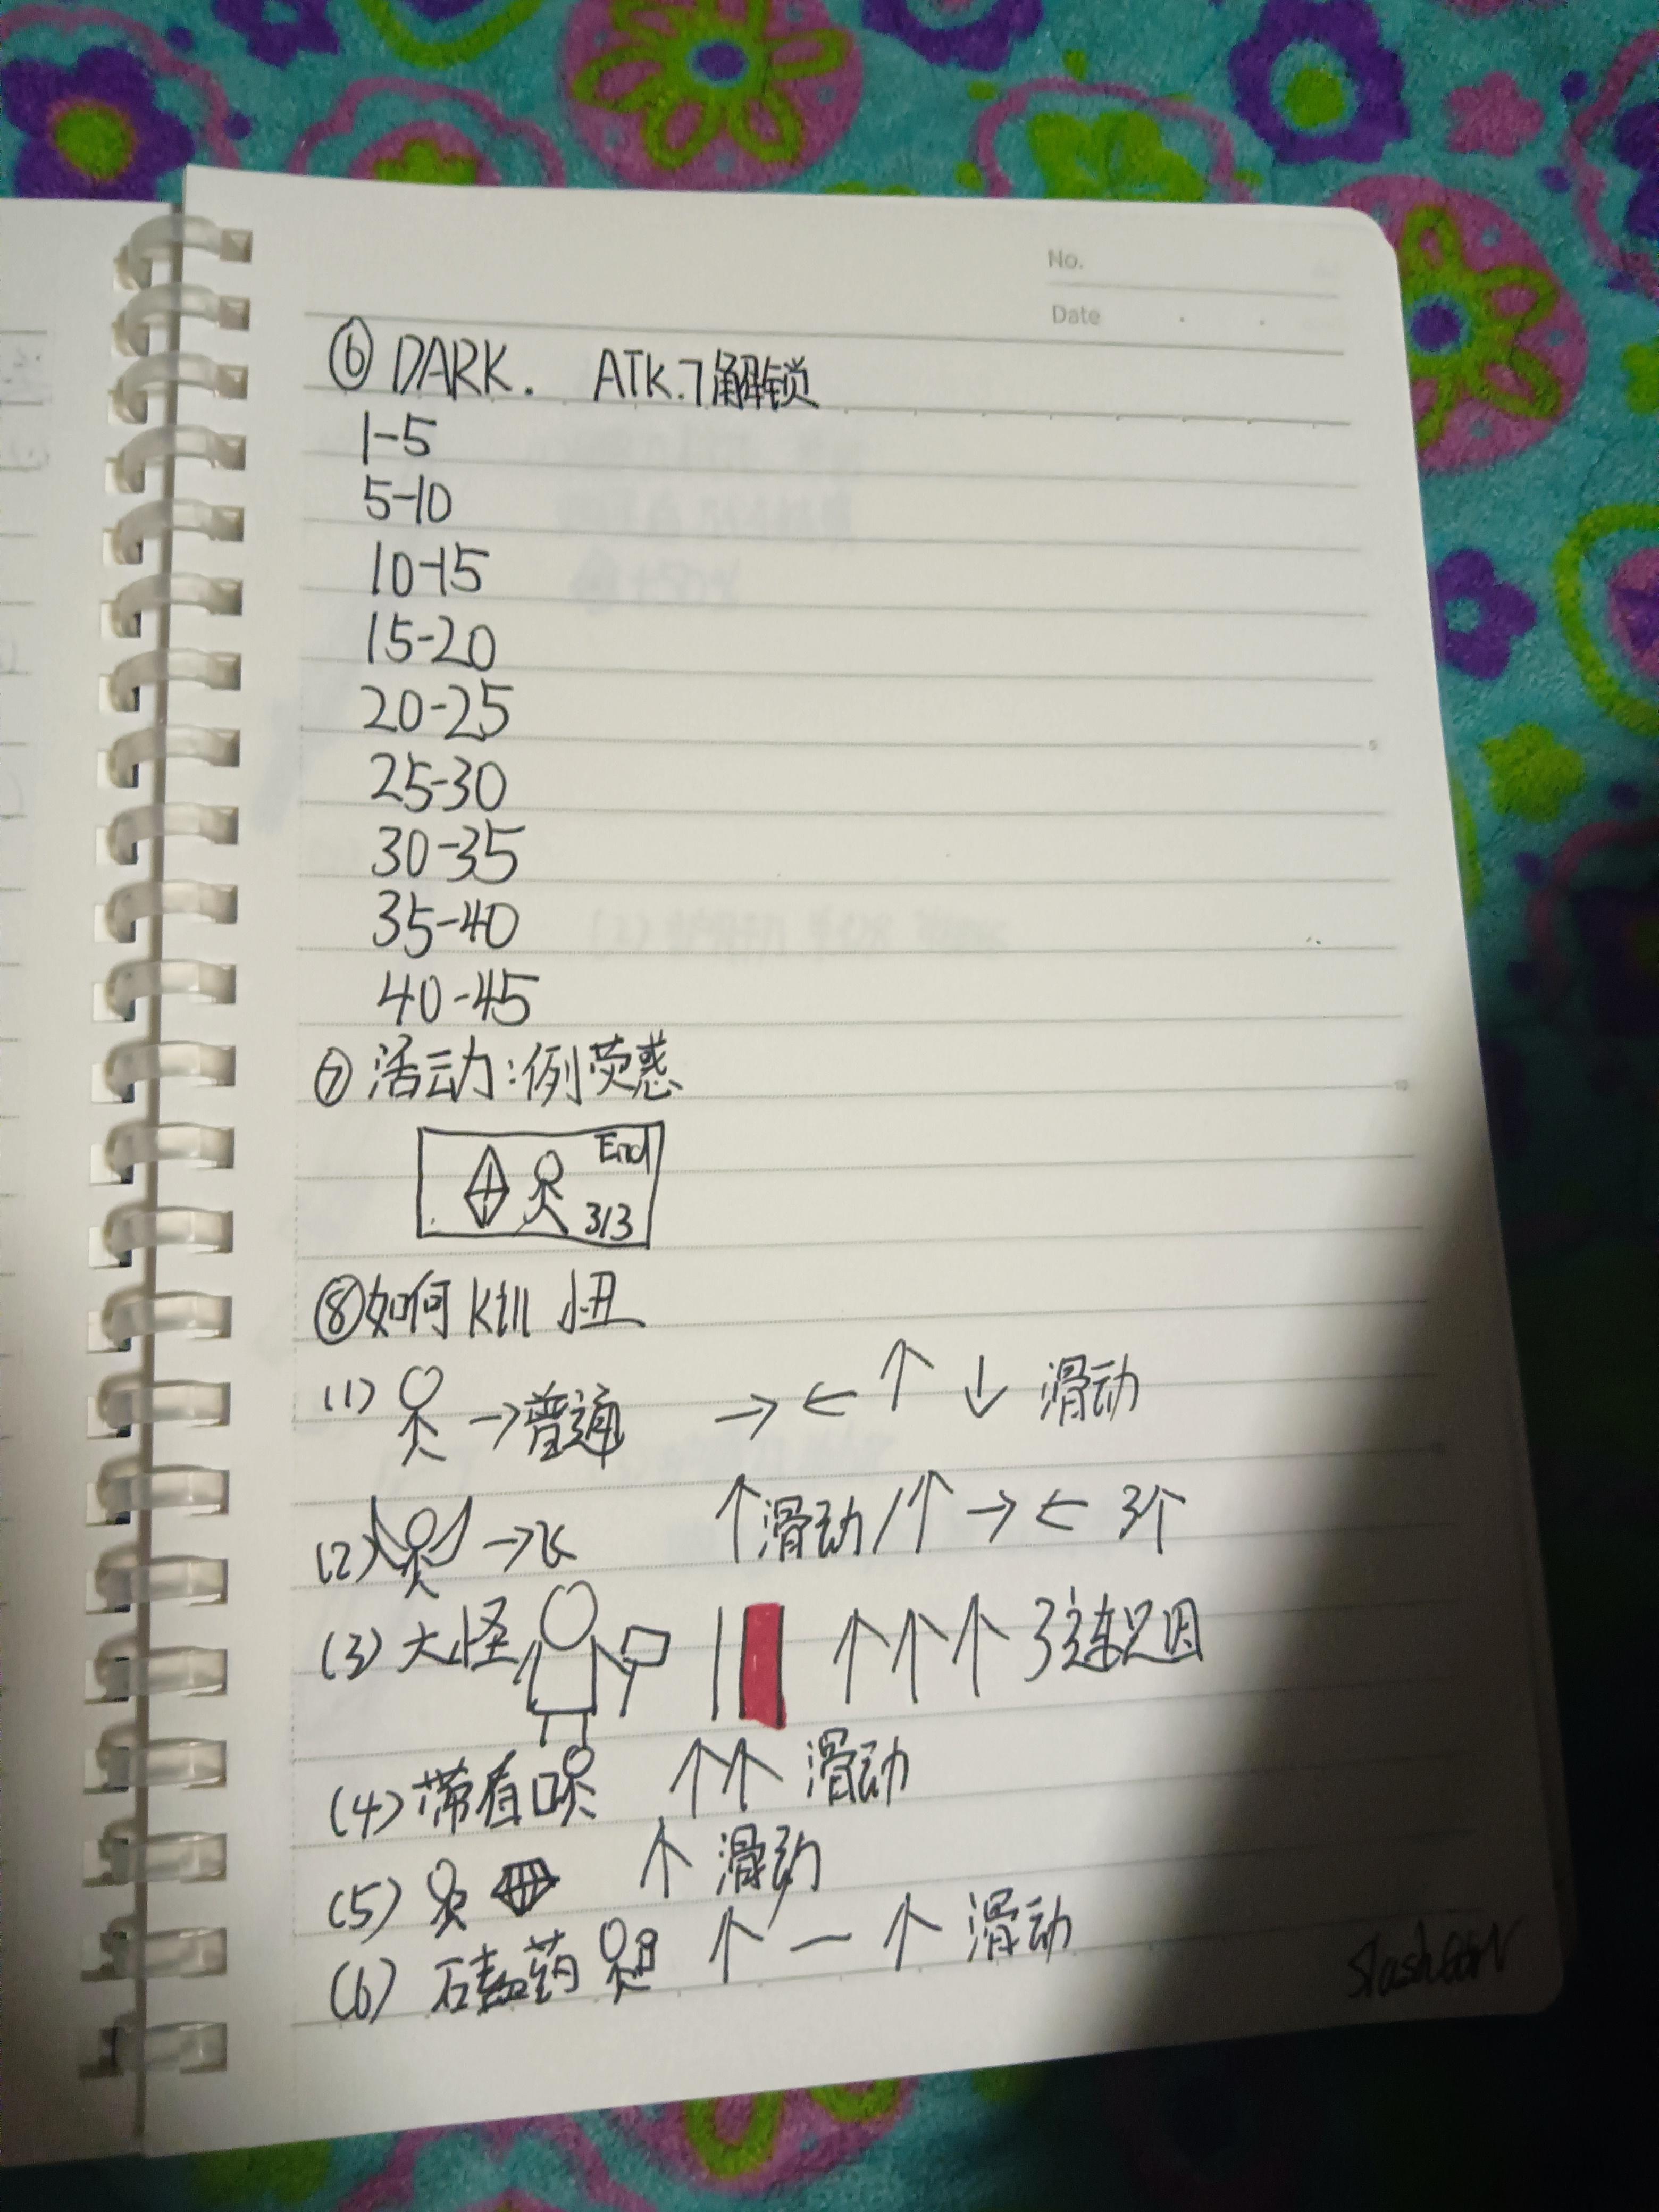 No.
Date
⑥ DARK. ATK.7解锁
1-5
5-10
10-15
15-20
20-25
25-30
30-35
35-40
40-45
⑦ 活动:例荧惑
End
3/3
⑧如何 kill 小丑
(1) →普通 → ← ↑ ↓ 滑动
(2) →飞 ↑滑动/↑ → ← 3个
(3) 大怪 ↑ ↑ ↑
(4) 带盾 ↑↑ 滑动
(5) ↑ 滑动
(6) 嗑药 ↑ — ↑ 滑动